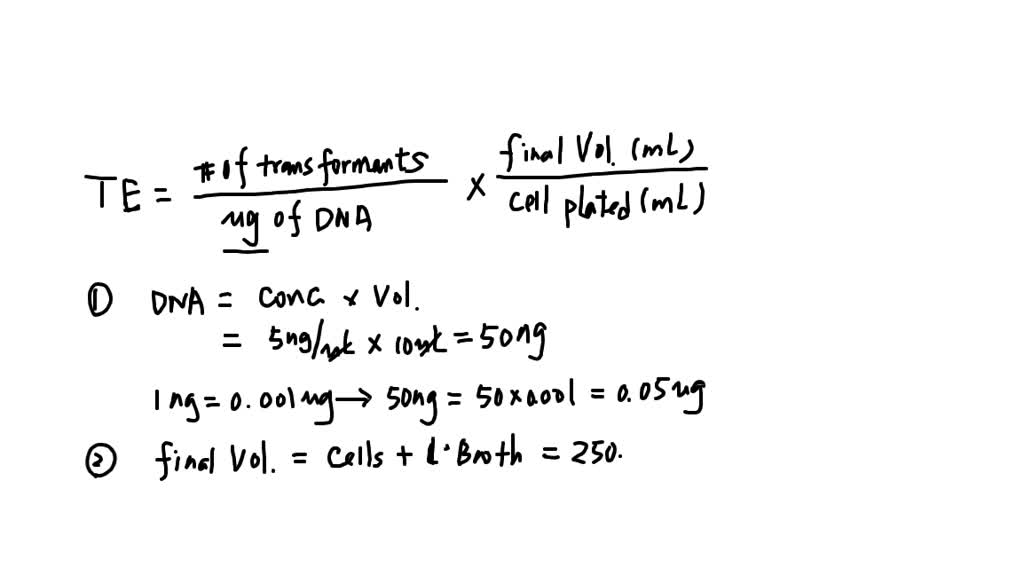 TE = # of transformants / µg of DNA × final Vol. (mL) / cell plated (mL)
① DNA = Conc × Vol.
= 5ng/µL × 10µL = 50ng
1 ng = 0.001µg → 50ng = 50×0.001 = 0.05µg
② final Vol. = Cells + L·Broth = 250.